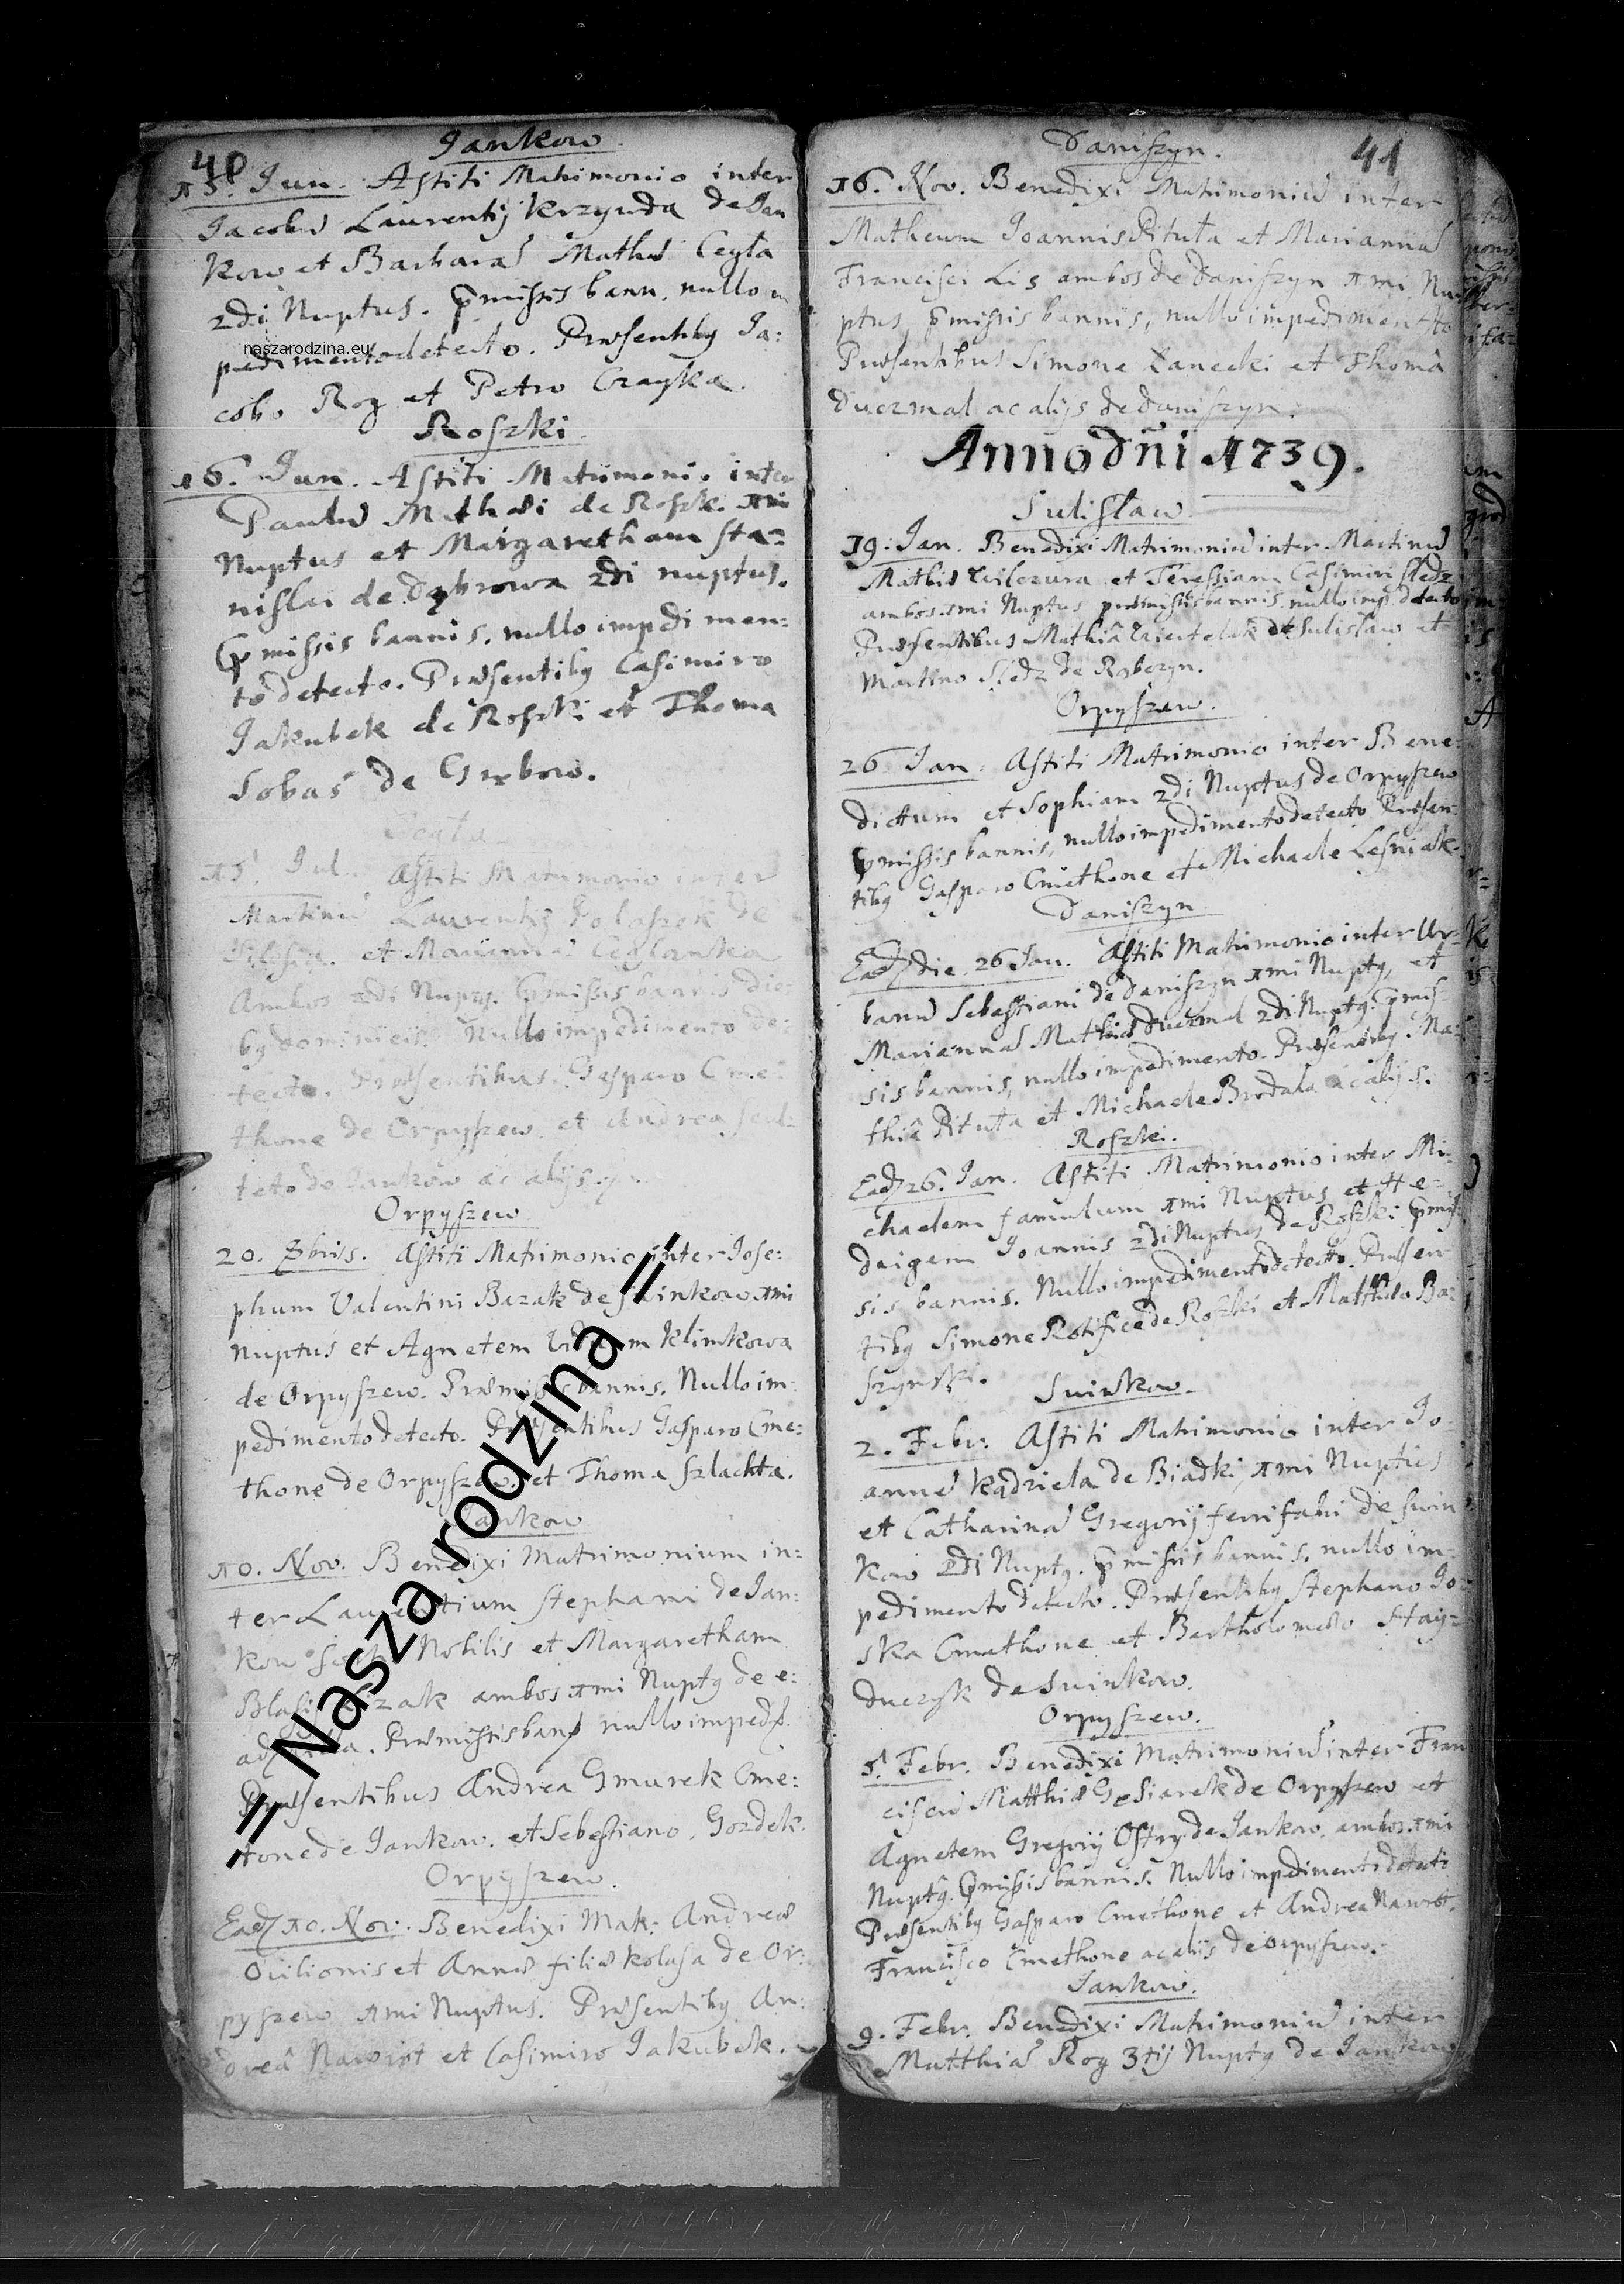 40
Jankow
15. Jun. Astiti Matrimonio inter
Jacobũ Laurentij Krzyuda de Jan
kow et Barbarã Mathei Cegła
2di Nuptus. P̃missis bann. nullo im
pedimento detecto. Præsentibg Ja:
cobo Rog et Petro Czayka.
naszarodzina.eu
Roszki.
16. Jun. Astiti Matrimonio inter
Paulũ Mathæi de Roszk. 1mi
Nuptus et Margaretham Sta=
nislai de Dąbrowa 2di nuptus.
P̃missis bannis. nullo impedimen:
to detecto. Præsentibg Casimiro
Jakubek de Roszki et Thoma
Sobas de Grębow.
Cegła
15. Jul. Astiti Matrimonio inter
Martinũ Laurentij de
et Mariannã Ceglanka
Ambos 2di Nuptg. P̃missis bannis die:
bg dominicis. Nullo impedimento de:
tecto. Præsentibus Gasparo Cme:
thone de Orpyszew et Andrea Scul:
teto de Jankow ac alijs.
Orpyszew
20. 8bris. Astiti Matrimonio inter Jose:
phum Valentini Bazak de Swinkow 1mi
nuptus et Agnetem Viduam Klimkowa
de Orpyszew. Præmissis bannis. Nullo im:
pedimento detecto. Præsentibus Gasparo Cme:
thone de Orpyszew. et Thoma Szlachta.
Jankow
10. Nov. Benedixi Matrimonium in:
ter Laurentium Stephani de Jan:
kow Nobilis et Margaretham
Blasij ambos 1mi Nuptg de e:
ad Villa. Præmissis ban nullo imped.
Præsentibus Andrea Gmurek Cme:
tone de Jankow. et Sebestiano. Gozdek.
Orpyszew.
Ead 10. Nov. Benedixi Mat: Andreæ
Ovilionis et Annæ filiæ Kolasa de Or:
pyszew 1mi Nuptus. Præsentibg An:
dreâ Nawrot et Casimiro Jakubek.
= Nasza rodzina =
41
Daniszyn.
16. Nov. Benedixi Matrimoniũ inter
Matheum Joannis Pituła et Mariannã
Francisci Lis ambos de Daniszyn 1mi Nu
ptus, p̃missis bannis, nullo impedimento
Præsentibus Simone Zanecki et Thomâ
Duczmal ac alijs de Daniszyn.
Anno dñi 1739.
Sulislaw
19. Jan. Benedixi Matrimoniũ inter Martinũ
Mathiæ Wilczura et Teressiam Casimiri Sledz
ambos 1mi Nuptus præmissis bannis nullo imp. detecto
Præsentibus Mathiâ de Sulislaw et
Martino Sledz de Robczyn.
Orpyszew.
26. Jan. Astiti Matrimonio inter Bene:
dictum et Sophiam 2di Nuptus de Orpyszew
p̃missis bannis, nullo impedimento detecto. Præsen:
tibg Gasparo Cmethone et Michaele Lesniak.
Daniszyn
Ead die 26 Jan. Astiti Matrimonio inter Ur:
banũ Sebastiani de Daniszyn 1mi Nuptg, et
Mariannã Mathiæ Duczmal 2di Nuptg. P̃mis
sis bannis, nullo impedimento. Præsentibg. Ma:
thiâ Pituła et Michaele Brodala ac alijs.
Roszki.
Ead 26. Jan. Astiti Matrimonio inter Mi:
chaelem famulum 1mi Nuptus et He=
dvigem Joannis 2di Nuptus de Roszki p̃mis
sis bannis. Nullo impedimento detecto. Præsen
tibg Simone Rotifice de Roszki et Matthæo Ba:
szynski.
Swinkow.
2. Febr. Astiti Matrimonio inter Jo
annẽ Kądziela de Biadki, 1mi Nuptus
et Catharinã Gregorij ferrifabri de Swin
kow 2di Nuptg. P̃missis bannis. nullo im
pedimento detecto. Præsentibg Stephano Jo
ska Cmethone et Bartholomæo Stay=
duczyk de Swinkow.
Orpyszew.
5. Febr. Benedixi Matrimoniũ inter Fran
ciscũ Matthiæ Gęsiarek de Orpyszew et
Agnetem Gregorij Ostry de Jankow. ambos 1mi
Nuptg. P̃missis bannis. Nullo impedimento detecto
Præsentibg Gasparo Cmethone et Andrea Nawrot.
Francisco Cmethone ac alijs de Orpyszew.
Jankow.
9. Febr. Benedixi Matrimoniũ inter
Matthiã Rog 3tij Nuptg de Jankow